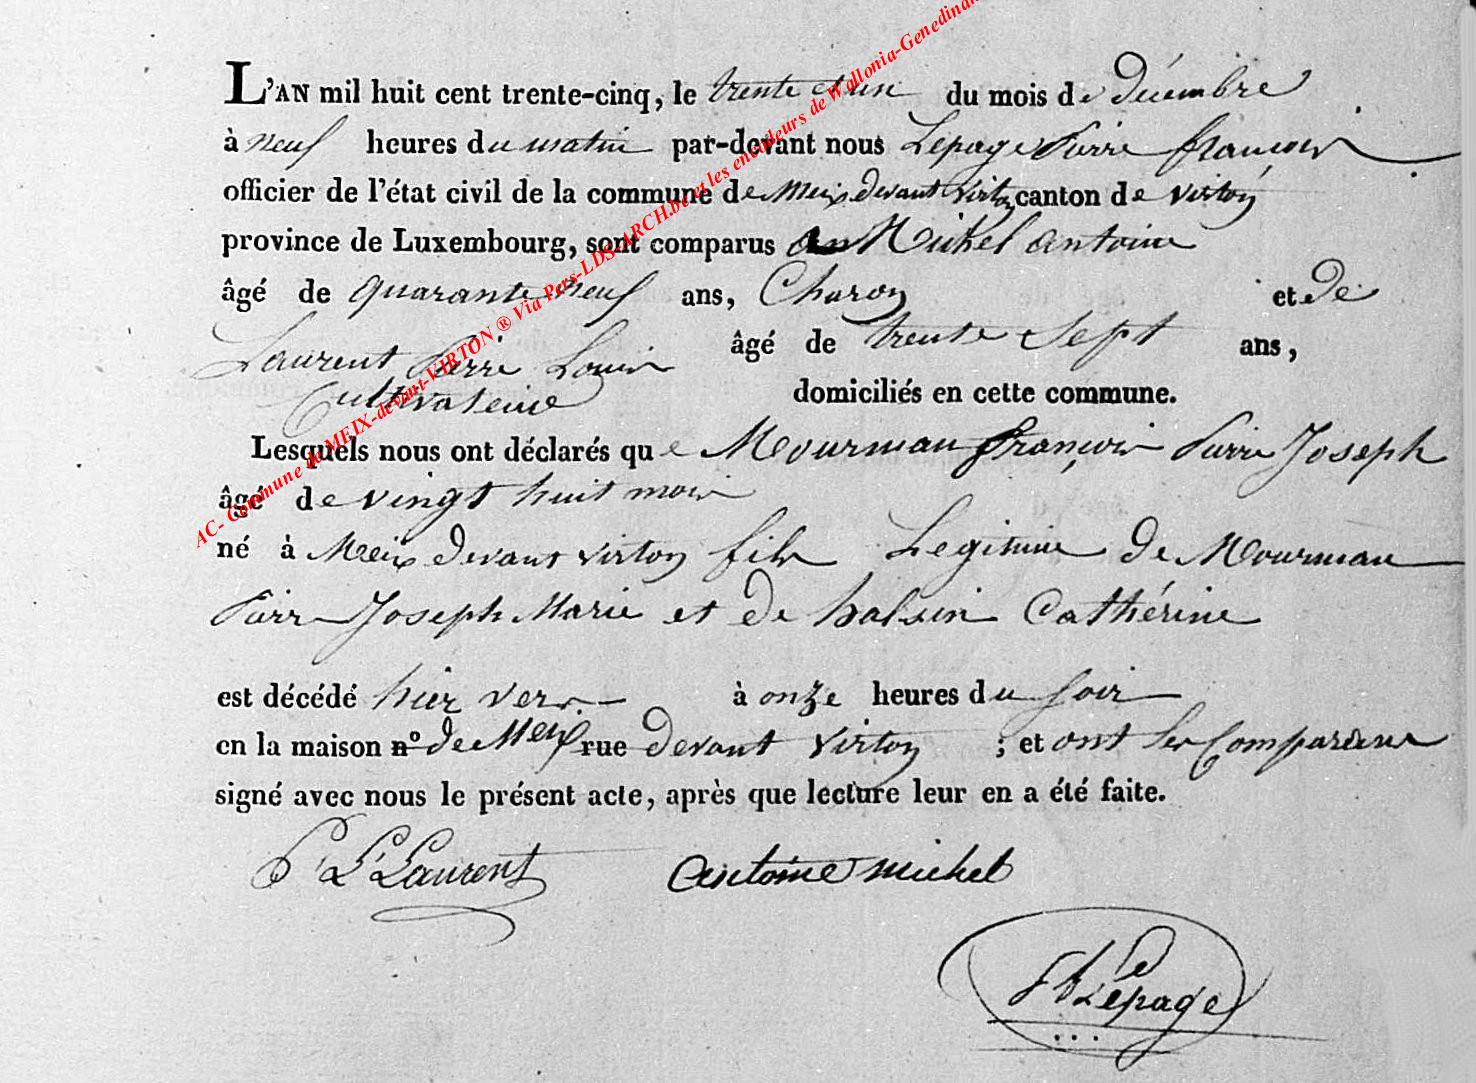 L'AN mil huit cent trente-cinq, le trente et un du mois de décembre
à neuf heures du matin par-devant nous Lepage Pierre françois
officier de l'état civil de la commune de Meix devant Virton canton de virton
province de Luxembourg, sont comparus Michel antoine
âgé de quarante neuf ans, Charon et de
Laurent Pierre Louis âgé de trente Sept ans,
Cultivateur domiciliés en cette commune.
Lesquels nous ont déclarés que Mourman françois Pierre Joseph
âgé de vingt huit mois
né à Meix devant virton fils Legitime de Mourman
Pierre Joseph Marie et de halsin Cathérine
est décédé hier vers à onze heures du soir
en la maison n° de Meix rue devant Virton ; et ont les Comparans
signé avec nous le présent acte, après que lecture leur en a été faite.
P. L. Laurent antoine michel
Lepage
AC- Commune de MEIX-devant-VIRTON ® Via Pers-LDS-ARCH.be et les encodeurs de Wallonia-Genedinan